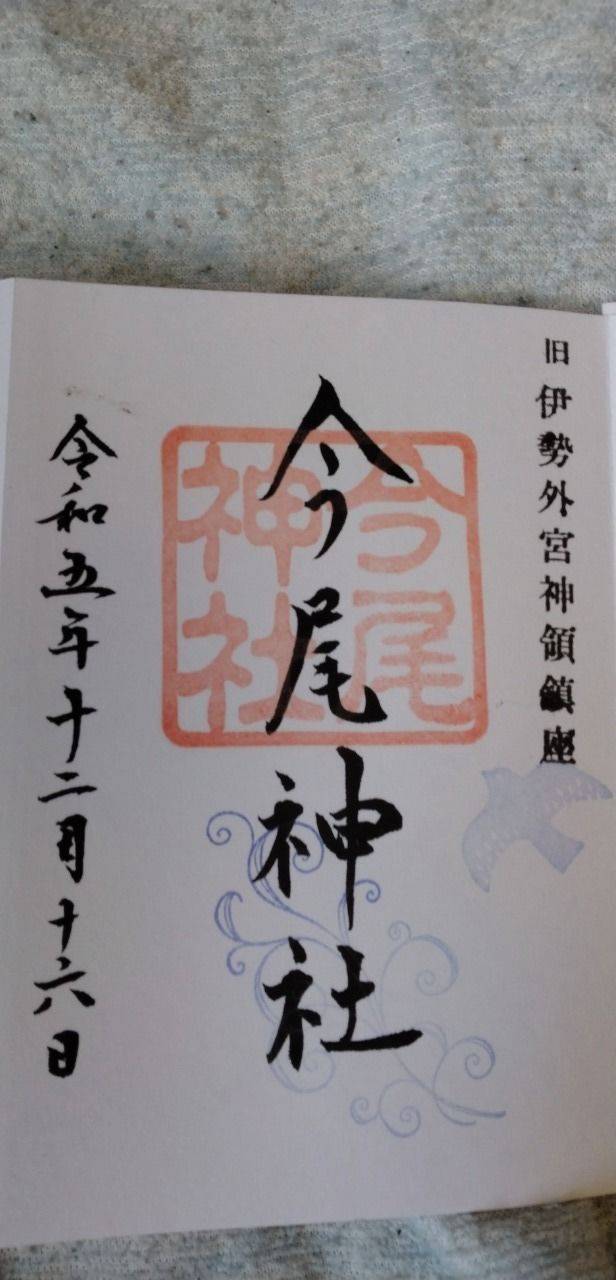 旧伊勢外宮神領鎮座
今尾神社
今尾
神社
令和五年十二月十六日